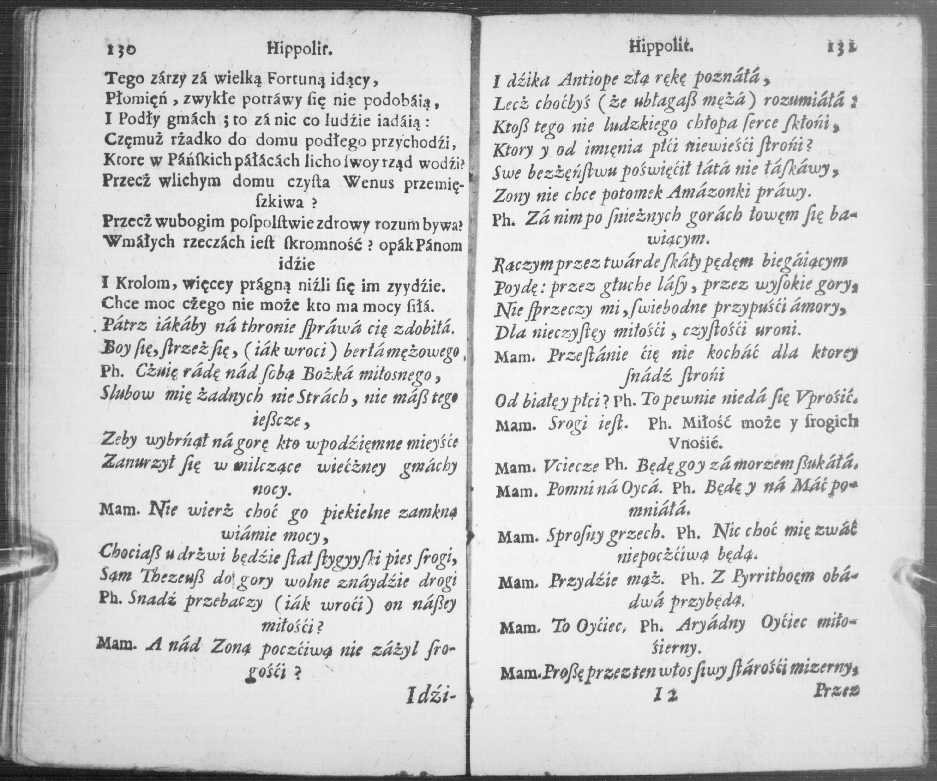 130 Hippolit.
Tego zárzy zá wielką Fortuną idący,
Płomięń, zwykłe potráwy ſię nie podobáią,
I Podły gmách; to zá nic co ludźie iadáią:
Częmuż rżadko do domu podłego przychodźi,
Ktore w Páńſkich páłácách licho ſwoy rząd wodźi?
Przecż wlichym domu czyſta Wenus przemię-
ſzkiwa?
Przecż wubogim poſpolſtwie zdrowy rozum bywa?
Wmáłych rzeczách ieſt ſkromność? opák Pánom
idźie
I Krolom, więcey prágną niźli ſię im zyydźie.
Chce moc cżego nie może kto ma mocy ſiłá.
Pátrz iákáby ná thronie ſpráwá cię zdobiłá.
Boy ſię, ſtrzeż ſię, (iák wroci) berłá mężowego
Ph. Cżuię rádę nád ſobą Bożká miłosnego,
Slubow mię żadnych nie Strách, nie máß tego
ieſzcze,
Zeby wybrńął ná gorę kto wpodźięmne mieyśće
Zanurzył ſię w milczące wiećżney gmáchy
nocy.
Mam. Nie wierż choć go piekielne zamkną
wiámie mocy,
Chociaß u drżwi będźie ſtał ſtygyyſki pies ſrogi,
Sąm Thezeuß do gory wolne znáydźie drogi
Ph. Snadź przebaczy (iák wroći) on náßey
miłośći?
Mam. A nád Zoną poczćiwą nie záżyl ſro-
gośći?
Idźi-
Hippolit. 131
I dźika Antiope złą rękę poznáłá,
Lecż choćbyś (że ubłagaß mężá) rozumiáłá:
Ktoß tego nie ludzkiego chłopa ſerce ſkłońi,
Ktory y od imięnia płći niewieśći ſtrońi?
Swe bezżęńſtwu poświęćił łátá nie łáſkáwy,
Zony nie chce potomek Amázonki práwy.
Ph. Zá nim po ſnieżnych gorách łowęm ſię ba-
wiącym.
Rączym przez twárde ſkáły pędęm biegáiącym
Poydę: przez głuche láſy, przez wyſokie gory,
Nie ſprzeczy mi, ſwiebodne przypuśći ámory,
Dla nieczyſtęy miłośći, czyſtośći uroni.
Mam. Przeſtánie ćię nie kocháć dla ktorey
ſnádź ſtrońi
Od białęy płci? Ph. To pewnie niedá ſię Vproſić.
Mam. Srogi ieſt. Ph. Miłość może y ſrogich
Vnośić.
Mam. Vciecze Ph. Będę go y zá morzem ßukáłá.
Mam. Pomni ná Oycá. Ph. Będę y ná Máć po-
mniáłá.
Mam. Sproſny grzech. Ph. Nic choć mię zwáć
niepocżćiwą będą.
Mam. Przydźie mąż. Ph. Z Pyrrithoęm obá-
dwá przybędą.
Mam. To Oyćiec, Ph. Aryádny Oyćiec miło-
śierny.
Mam. Proßę przez ten włos ſiwy ſtárośći mizerny,
I 2 Przez